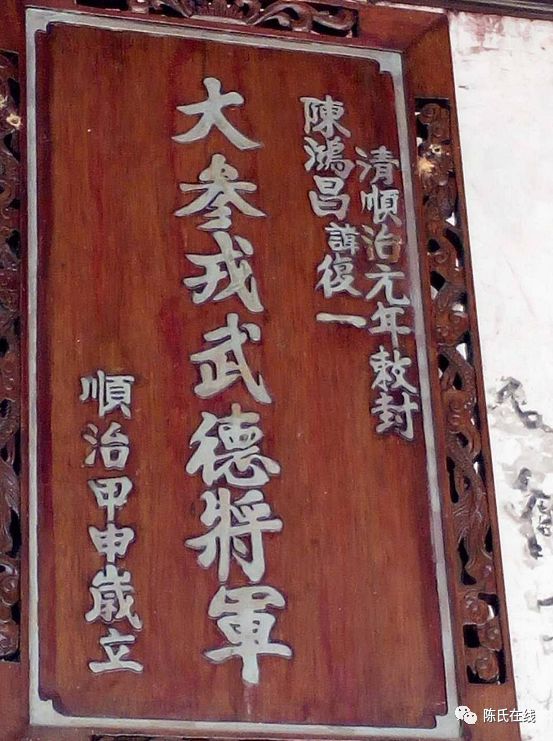 清順治元年敕封
陳鴻昌諱復一
大參戎武德將軍
順治甲申歲立
陈氏在线